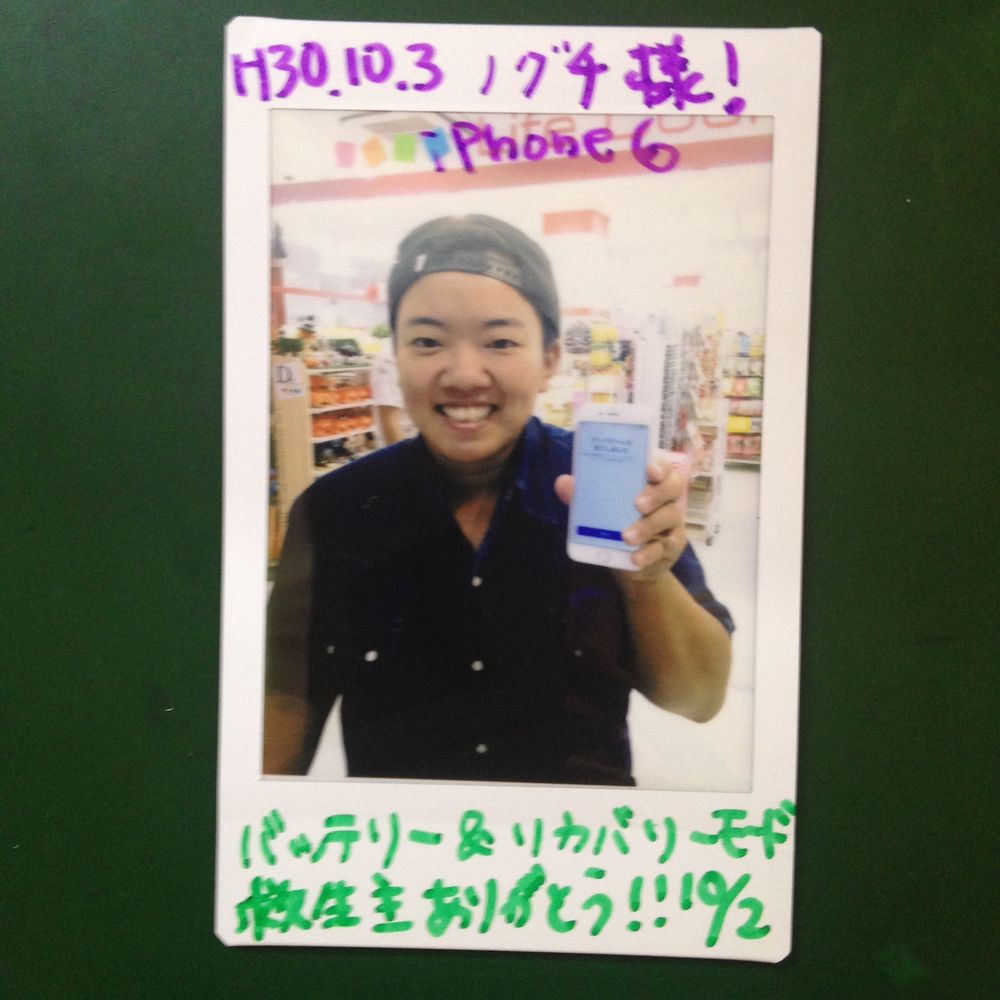 H30.10.3 ノグチ様!
iPhone 6
D
バッテリー&リカバリーモード
救生主ありがとう!!10/2